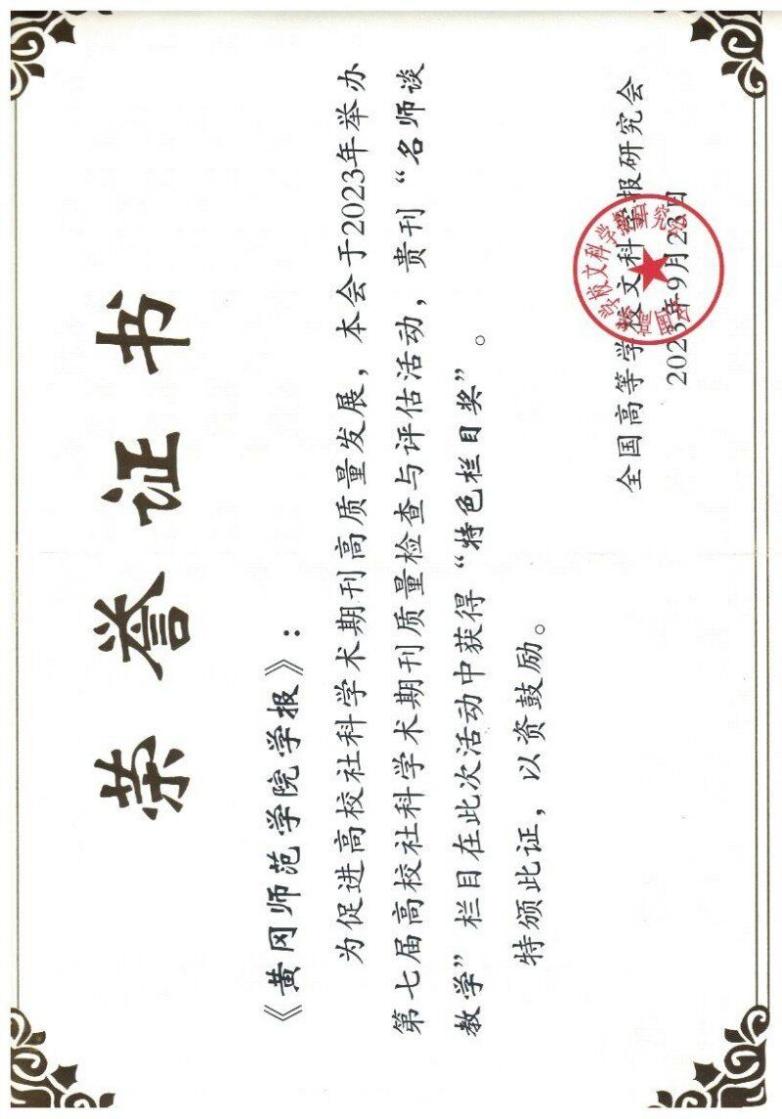 荣誉证书
《黄冈师范学院学报》：
为促进高校社科学术期刊高质量发展，本会于2023年举办
第七届高校社科学术期刊质量检查与评估活动，贵刊“名师谈
教学”栏目在此次活动中获得“特色栏目奖”。
特颁此证，以资鼓励。
全国高等学校文科学报研究会
2023年9月23日